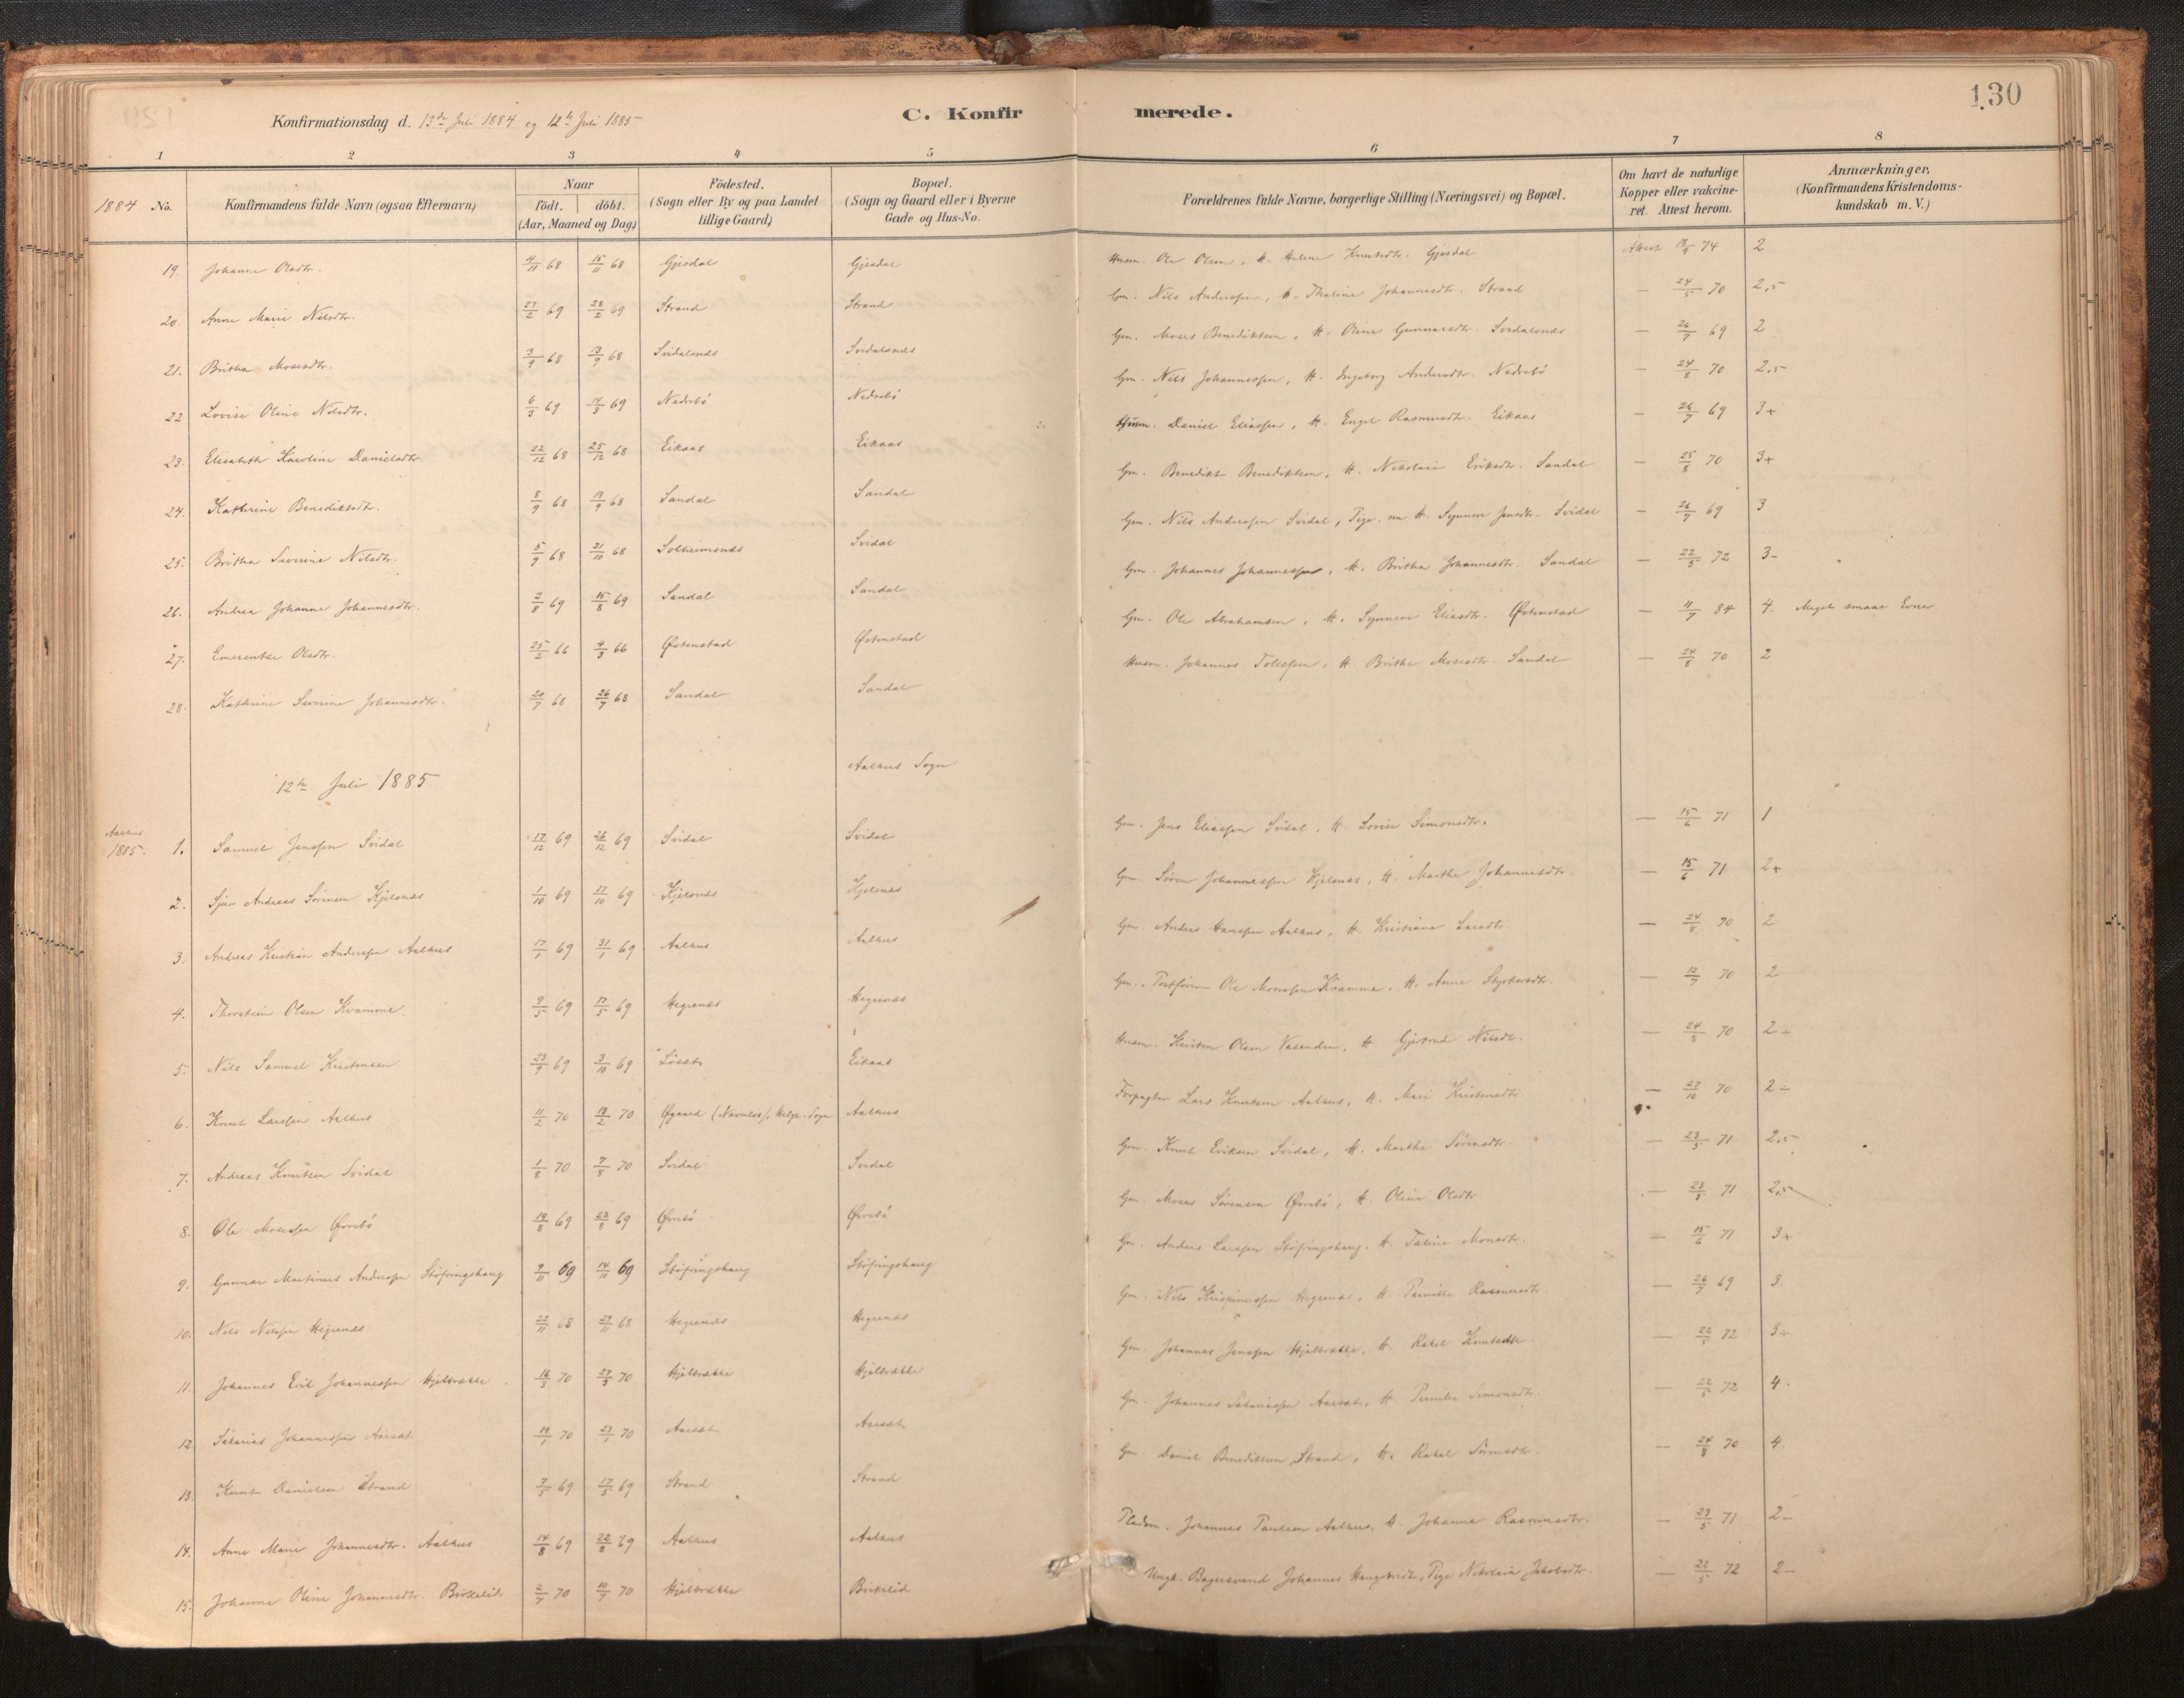 130
Konfirmationsdag d. 13de Juli 1884 og 12te Juli 1885
C. Konfirmerede.
1 2 3 4 5 6 7 8
1884 No.
Konfirmandens fulde Navn (ogsaa Efternavn)
Naar
Födt. döbt.
(Aar, Maaned og Dag)
Födested.
(Sogn eller By og paa Landet tillige Gaard)
Bopæl.
(Sogn og Gaard eller i Byerne Gade og Hus-No.
Forældrenes fulde Navne, borgerlige Stilling (Næringsvei) og Bopæl.
Om havt de naturlige Kopper eller vakcineret. Attest herom.
Anmærkninger,
(Konfirmandens Kristendomskundskab m. V.)
19. Johanne Olsdtr. 4/11 68 15/11 68 Gjesdal Gjesdal Husm. Ole Olsen, H. Helene Knutsdtr. Gjesdal Attest 74 2
20. Anne Marie Nilsdtr. 23/2 69 28/2 69 Strand Strand Gm. Nils Anderssen, H. Thaline Johannesdtr. Strand — 24/5 70 2,5
21. Britha Mosesdtr. 3/9 68 13/9 68 Svidalsnæs Svidalsnæs Gm. Moses Benediktsen, H. Oline Gunnarsdtr. Svidalsnæs — 26/7 69 2
22 Lovise Oline Nilsdtr. 6/3 69 14/3 69 Nedrebö Nedrebö Gm. Nils Johannessen, H. Ingeborg Andersdtr. Nedrebö — 24/8 70 2,5
23. Elisabeth Karoline Danielsdtr. 22/12 68 25/12 68 Eikaas Eikaas Husm. Daniel Eliassen, H. Engel Rasmusdtr. Eikaas — 26/7 69 3+
24. Kathrine Benediktsdtr. 8/9 68 13/9 68 Sandal Sandal Gm. Benedikt Benediktsen, H. Nikolaia Eriksdtr. Sandal — 25/8 70 3+
25. Britha Severine Nilsdtr. 5/9 68 21/10 68 Solheimsnæs Svidal Gm. Nils Anderssen Svidal, Pige nu H. Synneve Jensdtr. Svidal — 26/7 69 3
26. Andrea Johanne Johannesdtr. 2/8 69 15/8 69 Sandal Sandal Gm. Johannes Johannessen, H. Britha Johannesdtr. Sandal — 22/5 72 3-
27. Emerentse Olsdtr. 25/2 66 4/3 66 Østenstad Østenstad Gm. Ole Abrahamsen, H. Synneve Eliasdtr. Østenstad — 11/7 84 4. Meget smaae Evner
28. Kathrine Severine Johannesdtr. 20/7 68 26/7 68 Sandal Sandal Husm. Johannes Tollefsen, H. Britha Mosesdtr. Sandal — 24/8 70 2
12te Juli 1885
Aalhus Sogn
Aalhus
1885. 1. Samuel Jenssen Svidal 17/12 69 26/12 69 Svidal Svidal Gm. Jens Eliassen Svidal, H. Lovise Simonsdtr. — 15/6 71 1
2. Sjur Andreas Sörensen Kjelsnæs 1/10 69 17/10 69 Kjelsnæs Kjelsnæs Gm. Sören Johannessen Kjelsnæs, H. Marthe Johannesdtr. — 15/6 71 2+
3. Andreas Kristian Anderssen Aalhus 17/1 69 31/1 69 Aalhus Aalhus Gm. Anders Hanssen Aalhus, H. Kristiane Larsdtr. — 24/8 70 2
4. Thorstein Olsen Kvamme 9/5 69 17/5 69 Hegrenæs Hegrenæs Gm., Postförer Ole Monssen Kvamme, H. Anne Styrkersdtr. — 12/7 70 2
5. Nils Samuel Kristensen 23/9 69 3/10 69 Löset Eikaas Husm. Kristen Olsen Vasenden, H. Gjertrud Nilsdtr. — 24/8 70 2-
6. Knut Larssen Aalhus 11/2 70 70 Øgaard (Navnlös), Helgh. Sogn Aalhus Forpagter Lars Knutsen Aalhus, H. Mari Kristensdtr. — 27/10 70 2-
7. Andreas Knutsen Svidal 1/8 70 7/8 70 Svidal Svidal Gm. Knut Eriksen Svidal, H. Marthe Sörensdtr. — 23/5 71 2,5
8. Ole Mosessen Øvrebö 69 22/8 69 Øvrebö Øvrebö Gm. Moses Sörensen Øvrebö, H. Oline Olsdtr. — 23/5 71 2,5
9. Gunnar Martinus Anderssen Stöfringshaug 9/11 69 14/11 69 Stöfringshaug Stöfringshaug Gm. Anders Larssen Stöfringshaug, H. Taline Monsdtr. — 15/6 71 3+
10. Nils Nilssen Hegrenæs 22/11 68 29/11 68 Hegrenæs Hegrenæs Gm. Nils Krispinussen Hegrenæs, H. Pernille Rasmusdtr. — 26/7 69 3.
11. Johannes Erik Johannessen Hjelbrække 16/3 70 27/3 70 Hjelbrække Hjelbrække Gm. Johannes Jenssen Hjelbrække, H. Rakel Knutsdtr. — 22/5 72 3+
12 Sakarias Johannessen Aarset 70 23/1 70 Aarset Aarset Gm. Johannes Sakariassen Aarset, H. Pernille Simonsdtr. — 22/5 72 4.
13. Knut Danielsen Strand 7/5 69 17/5 69 Strand Strand Gm. Daniel Benediktsen Strand, H. Rakel Sörensdtr. — 24/8 70 4
14. Anne Marie Johannesdtr. Aalhus 14/8 69 22/8 69 Aalhus Aalhus Pladsm. Johannes Paulsen Aalhus, H. Johanne Rasmusdtr. — 23/5 71 2-
15. Johanne Oline Johannesdtr. Birkelid 2/7 70 10/7 70 Hjelbrække Birkelid Ungk. Bagersvend Johannes, Pige Nikolaia Jakobsdtr. — 22/5 72 2-